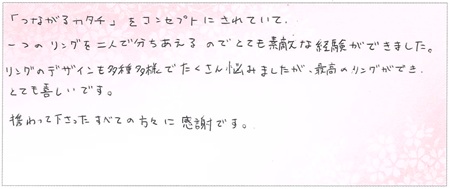 「つながるカタチ」をコンセプトにされていて、
一つのリングを二人で分ちあえるのでとても素敵な経験ができました。
リングのデザインも多種多様でたくさん悩みましたが、最高のリングができ、
とても喜しいです。
携わって下さったすべての方々に感謝です。